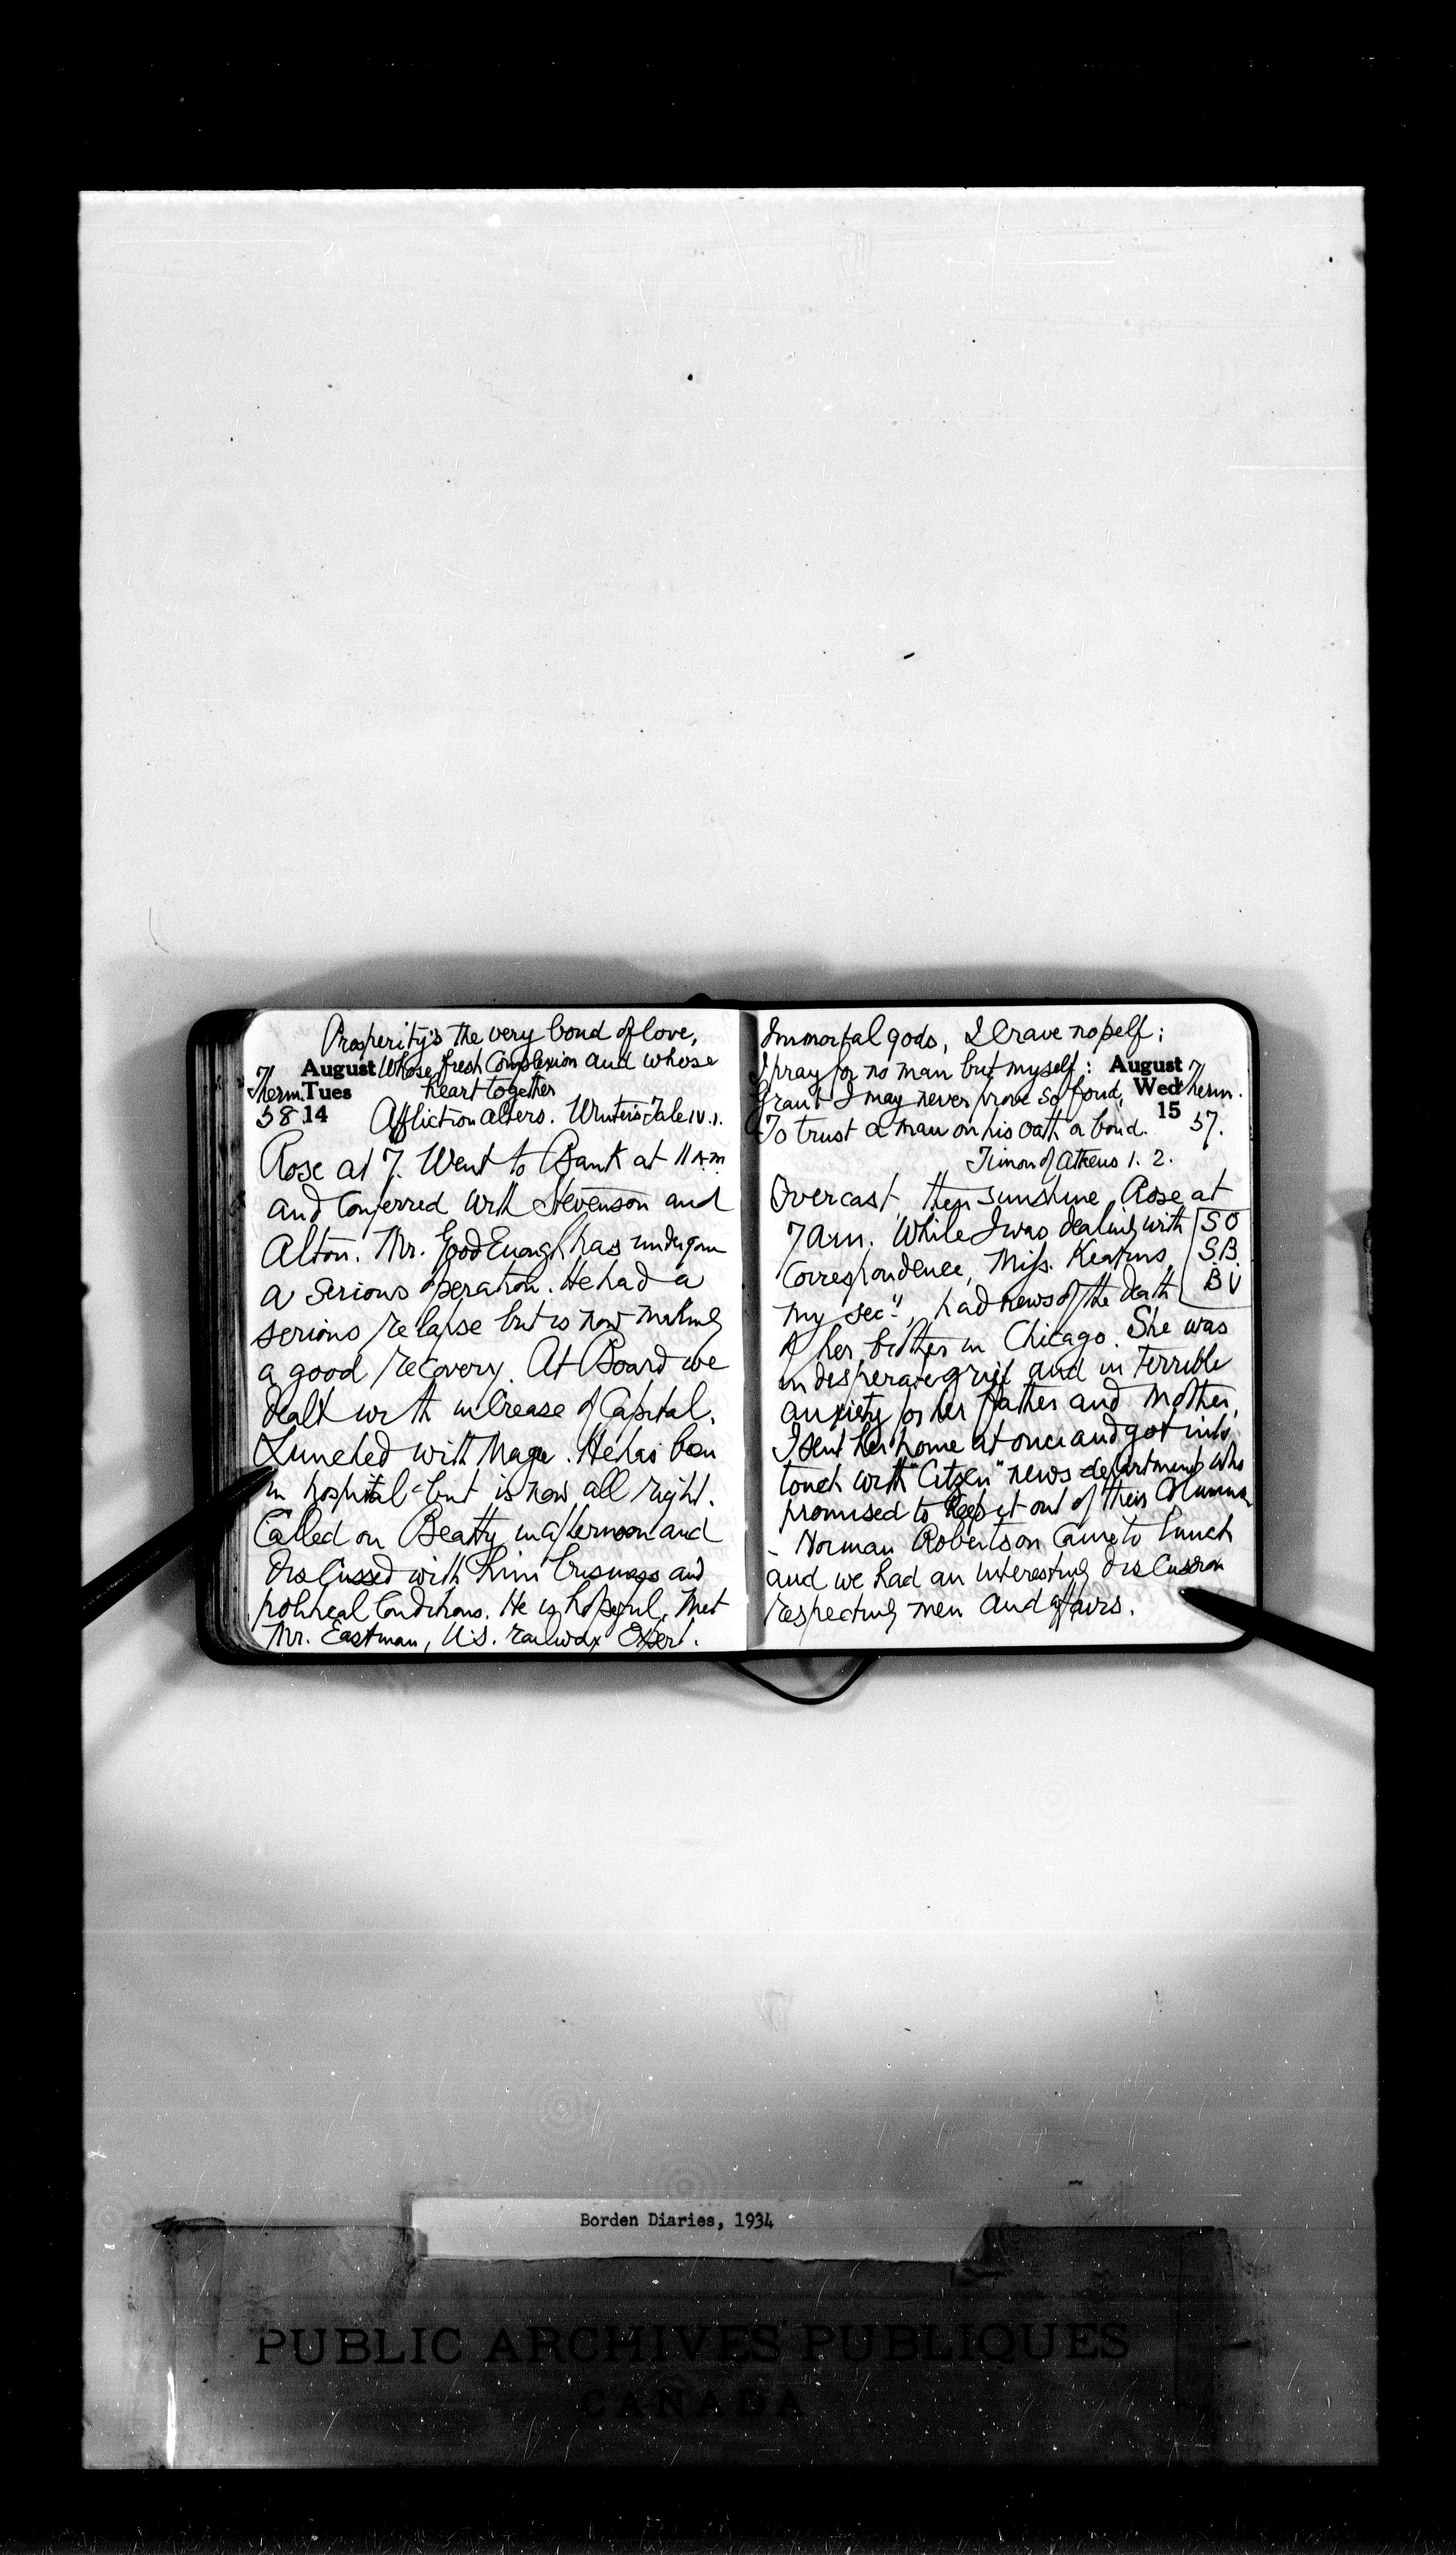 Prosperity's the very bond of love,
August Whose fresh Complexion and whose
Therm. Tues heart together
58 14 Affliction alters. Winter's Tale IV. 1.
Rose at 7. Went to Bank at 11 A.M.
and Conferred with Stevenson and
Alton. Mr. GoodEnough has undergone
a serious operation. He had a
serious relapse but is now making
a good recovery. At Board we
dealt with increase of Capital.
Lunched with Magee. He has been
in hospital - but is now all right.
Called on Beatty in afternoon and
discussed with him business and
political Conditions. He is hopeful. Met
Mr. Eastman, U.S. railway Expert.
Immortal gods, I Crave no pelf;
I pray for no man but myself: August
Grant I may never prove so fond, Wed Therm.
To trust a man on his oath or bond. 15 57.
Timon of Athens 1. 2.
Overcast, then sunshine. Rose at
7 a.m. While I was dealing with SO
Correspondence, Miss. Kearns, S.B.
my secy, had news of the death BV
of her brother in Chicago. She was
in desperate grief and in terrible
anxiety for her father and mother.
I sent her home at once and got into
touch with "Citizen" news department who
promised to keep it out of their Columns
- Norman Robertson Came to lunch
and we had an interesting discussion
respecting men and affairs.
Borden Diaries, 1934
PUBLIC ARCHIVES PUBLIQUES
CANADA